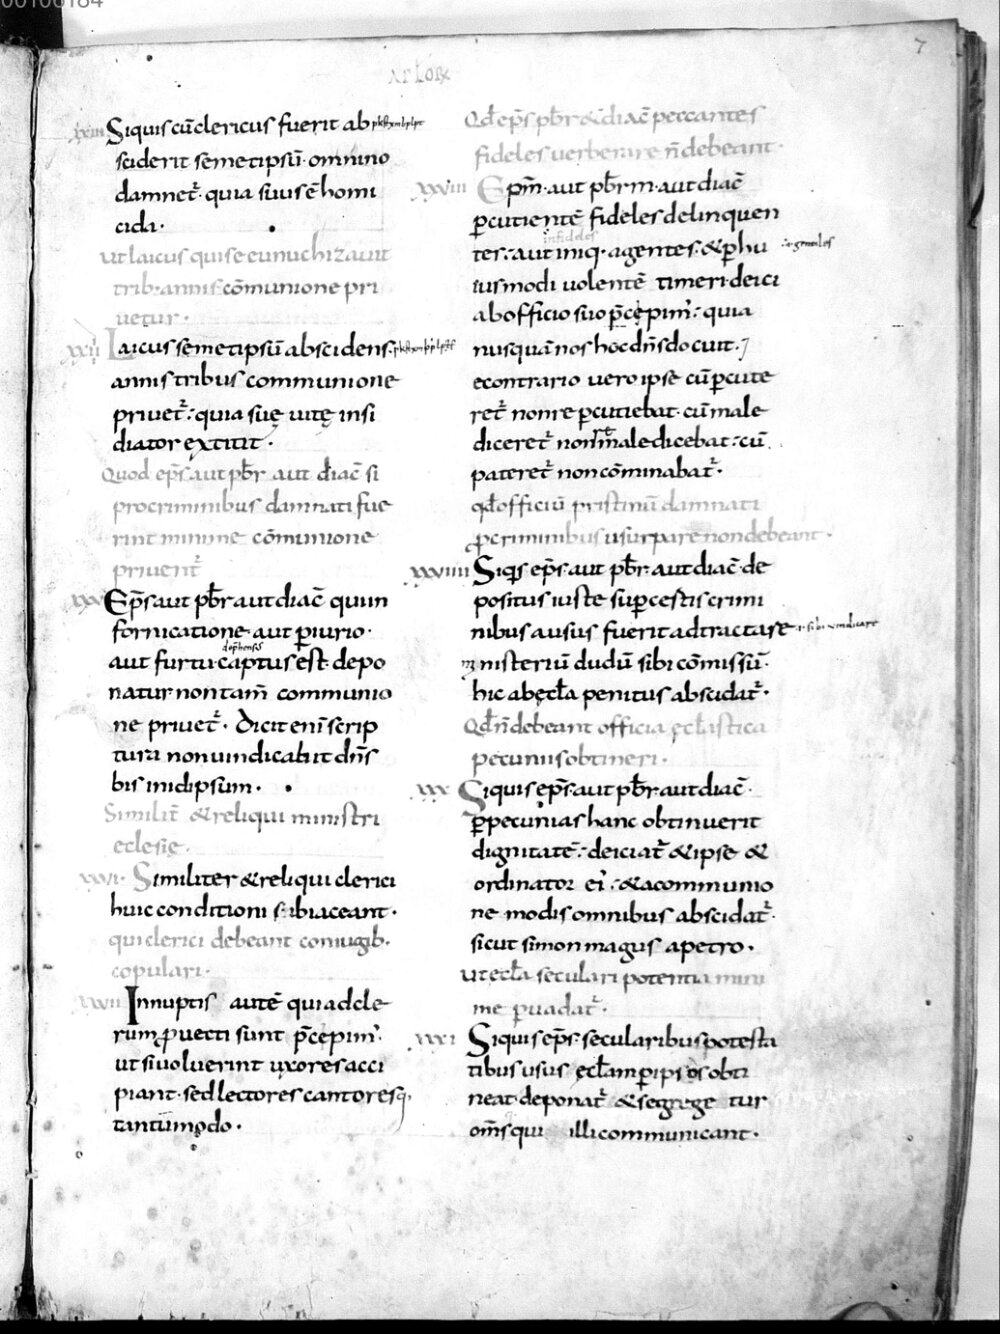 00106184
7
xxiii Siquis cū clericus fuerit ab
sciderit semetipsū· omnino
damnet᷑· quia suus ē homi
cida·
ut laicus qui se eunuchizauit
trib· annis cōmunione pri
uetur·
xxiiii Laicus semetipsū abscidens·
annis tribus communione
priuet᷑: quia suę uitę insi
diator extitit·
Quod ep̄s aut pb̄r aut diac̄ si
pro criminibus damnati fue
rint minime cōmunione
priuent᷑
xxv Ep̄s aut pb̄r aut diac̄ qui in
fornicatione aut ꝑiurio·
dep̄hensus
aut furtu captus est· depo
natur non tam̄ communio
ne priuet᷑· Dicit eni scrip
tura non uindicabit dn̄s
bis in idipsum·
Similit̄ & reliqui ministri
eclesię·
xxvi· Similiter & reliqui clerici
huic conditioni subiaceant·
qui clerici debeant coniugib·
copulari·
xxvii Innuptis autē qui ad cle
rum ꝓuecti sunt p̄cepim᷒·
ut si uoluerint uxores acci
piant· sed lectores cantoresq·
tantummodo·
Qd̄ ep̄s pb̄r & diac̄ peccantes
fideles uerberare n̄ debeant·
xxviii Ep̄m· aut pb̄rm· aut diac̄
ꝑcutientē fideles delinquen
infideles
tes: aut iniq· agentes· & ꝑ hu
iusmodi uolentē timeri· deici
ab officio suo p̄cepim᷒: quia
nusquā nos hoc dn̄s docuit·
econtrario uero ipse cū ꝑcute
ret᷑ non reꝑcutiebat· cū male
diceret᷑ non maledicebat: cū
pateret᷑ non cōminabat᷑·
qd̄ officiū pristinū damnati
ꝓ criminibus usurpare non debeant·
xxviiii Siq̄s ep̄s· aut pb̄r· aut diac̄· de
positus iuste suꝑ certis crimi
nibus ausus fuerit adtractare
ministeriū dudū sibi cōmissū·
hic ab ęcl̄a penitus abscidat᷑·
Qd̄ n̄ debeant officia ęcl̄astica
pecuniis obtineri·
xxx Siquis ep̄s· aut pb̄r aut diac̄·
ꝑ pecunias hanc obtinuerit
dignitatē: deiciat᷑ & ipse &
ordinator ei᷒· & a communio
ne modis omnibus abscidat᷑·
sicut simon magus a petro·
ut ecl̄a seculari potentia mini
me ꝑuadat᷑·
xxxi Siquis ep̄s· secularibus potesta
tibus usus ęcl̄am ꝑ ipsos obti
neat· deponat᷑ & segregetur
om̄s qui illi communicant·